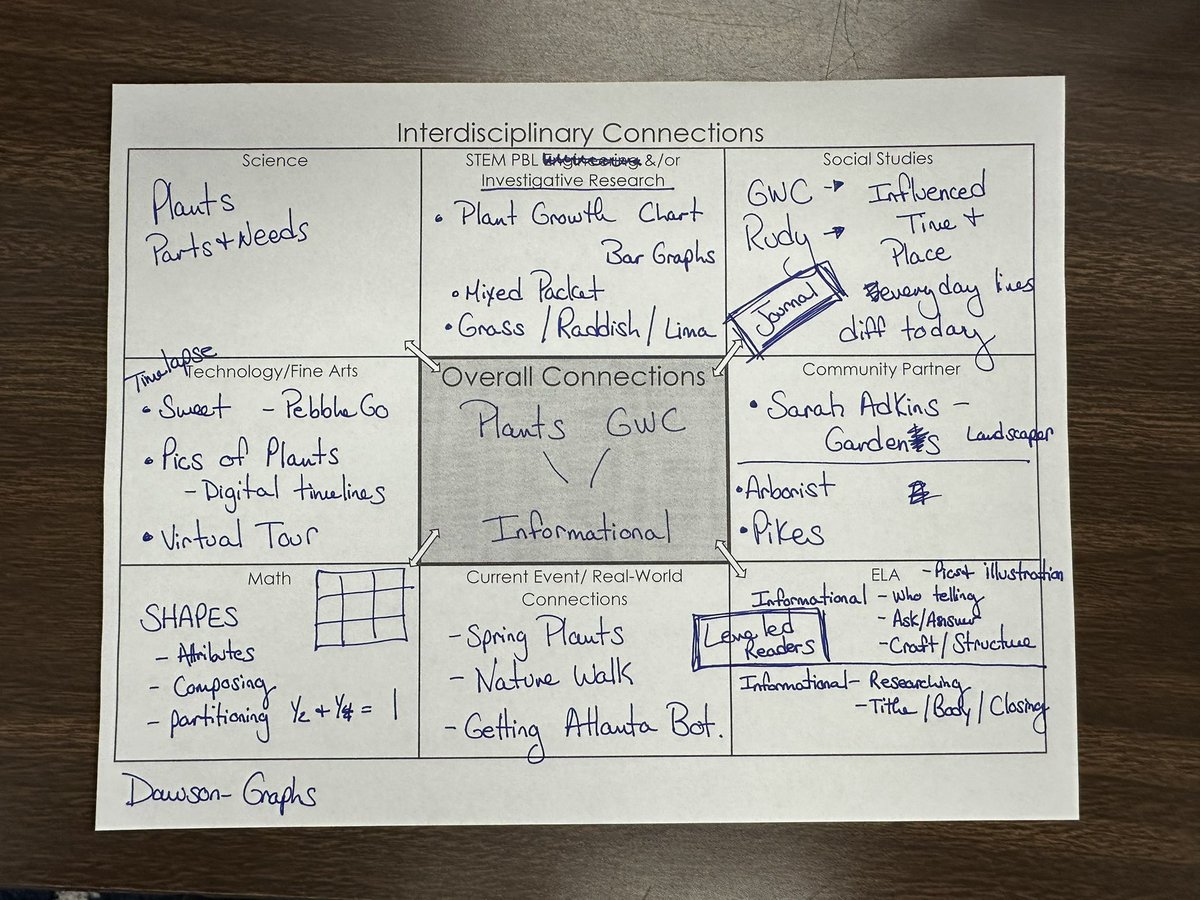 Interdisciplinary Connections
Science
Plants
Parts + Needs
STEM PBL Engineering &/or
Investigative Research
• Plant Growth Chart
Bar Graphs
• Mixed Packet
• Grass / Raddish / Lima
Social Studies
GWC → Influenced
Rudy → Time +
Place
Journal
everyday lives
diff today
Timelapse
Technology/Fine Arts
• Sweet - PebbleGo
• Pics of Plants
- Digital timelines
• Virtual Tour
Overall Connections
Plants GWC
Informational
Community Partner
• Sarah Adkins -
Gardens Landscaper
• Arborist
• Pikes
Math
SHAPES
- Attributes
- Composing
- partitioning
= 1
Current Event/ Real-World
Connections
- Spring Plants
- Nature Walk
- Getting Atlanta Bot.
ELA
- Pics + illustration
Informational - Who telling
- Ask/Answer
- Craft/Structure
Leveled
Readers
Informational - Researching
- Title / Body / Closing
Dawson - Graphs